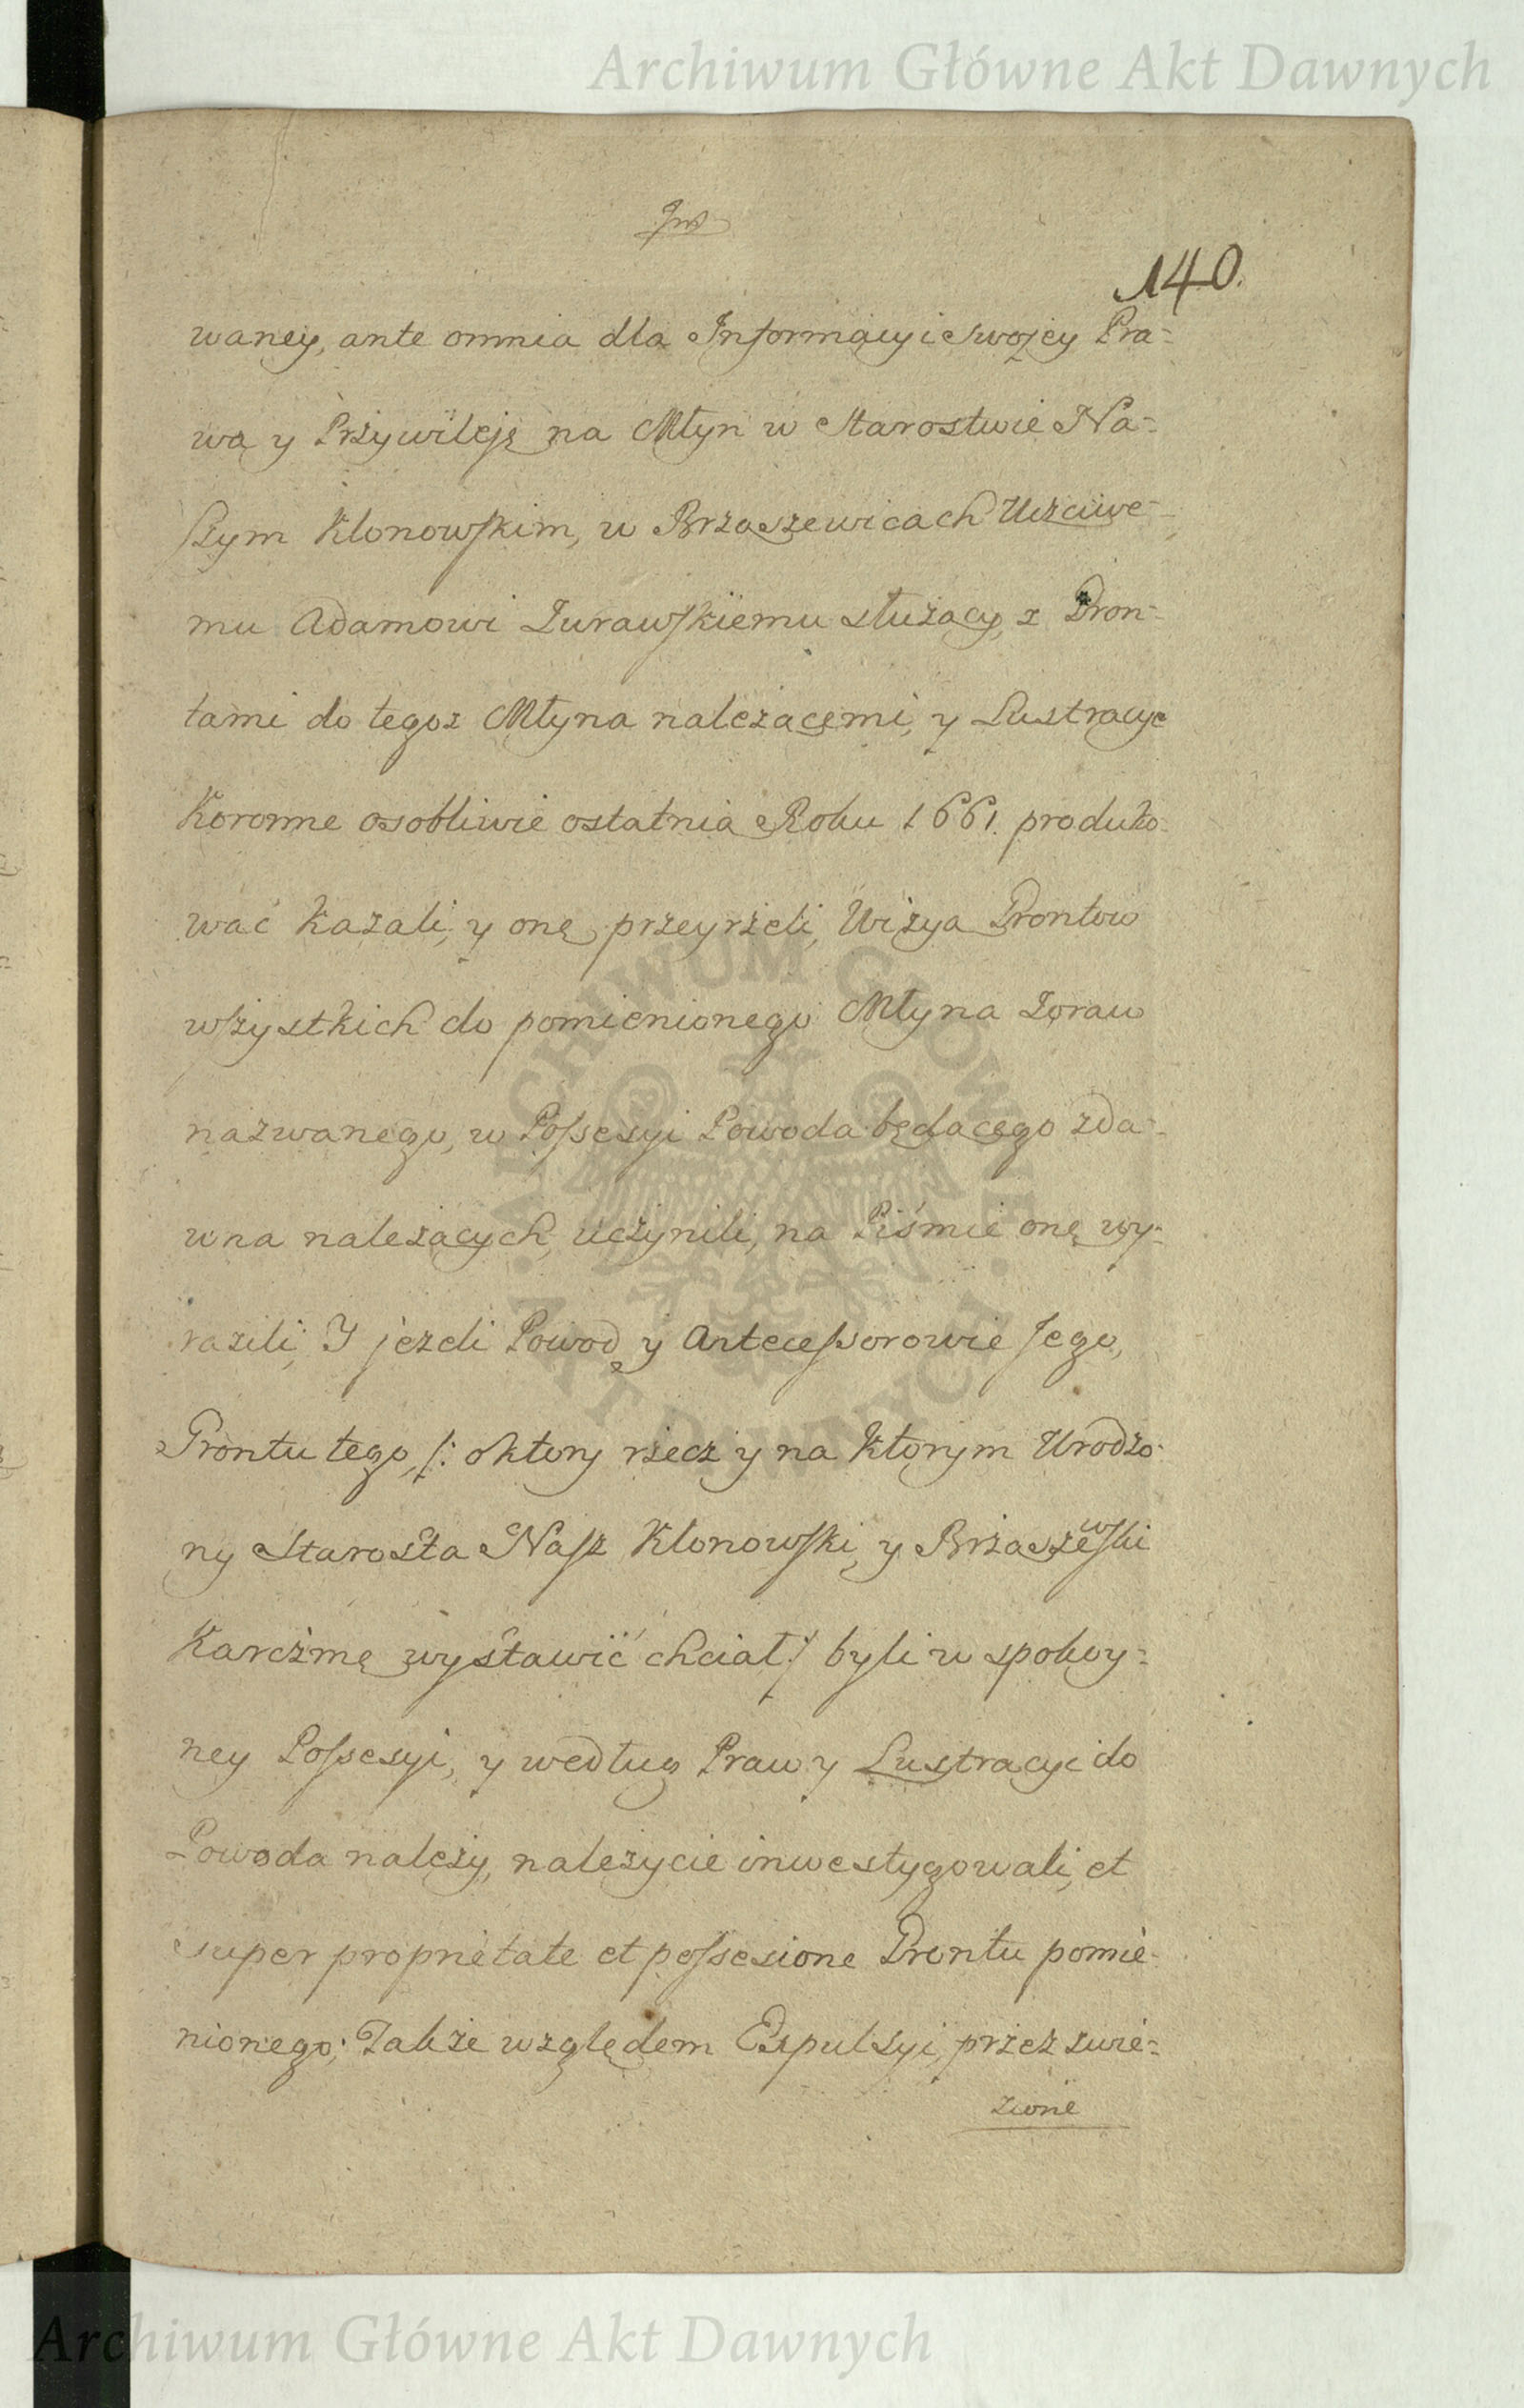 Archiwum Główne Akt Dawnych
140.
waney, ante omnia dla Informacyi swojey Pra-
wa y Przywileję na Młyn w Starostwie Na-
szym Klonowskim, w Brzaszewicach Uczciwe-
mu Adamowi Żurawskiemu służący, z Gron-
tami do tegoż Młyna należącemi, y Lustracye
Koronne osobliwie ostatnia Roku 1661. produko-
wać kazali, y onę przeyrzeli, Wizya Grontow
wszystkich do pomienionego Młyna Żoraw
nazwanego, w Possesyi Powoda będącego zda-
wna należących, uczynili, na Piśmie onę wy-
razili, Y jeżeli Powod y Antecessorowie Jego,
Grontu tego /: o ktory rzecz y na ktorym Urodzo-
ny Starosta Nasz Klonowski y Brzaszewski
Karczmę wystawić chciał :/ byli w spokoy-
ney Possesyi, y według Praw y Lustracyi do
Powoda należy, należycie inwestygowali, et
super proprietate et possesione Grontu pomie-
nionego; Także względem Expulsyi, przez zwie-
zione
ARCHIWUM GŁÓWNE AKT DAWNYCH
Archiwum Główne Akt Dawnych